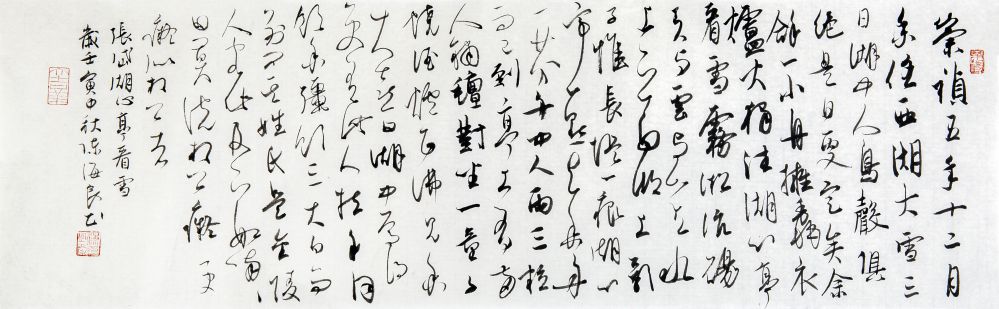 崇禎五年十二月
余住西湖大雪三
日湖中人鳥聲俱
絕是日更定矣余
拏一小舟擁毳衣
爐火獨往湖心亭
看雪霧凇沆碭
天與雲與山與水
上下一白湖上影
子惟長堤一痕湖心
亭一點與余舟
一芥舟中人兩三粒
而已到亭上有兩
人鋪氈對坐一童子
燒酒爐正沸見余
大喜曰湖中焉得
更有此人拉余同
飲余強飲三大白而
別問其姓氏是金陵
人客此及下船喃喃
曰莫說相公癡更
癡似相公者
張岱湖心亭看雪
歲壬寅中秋陳海良書